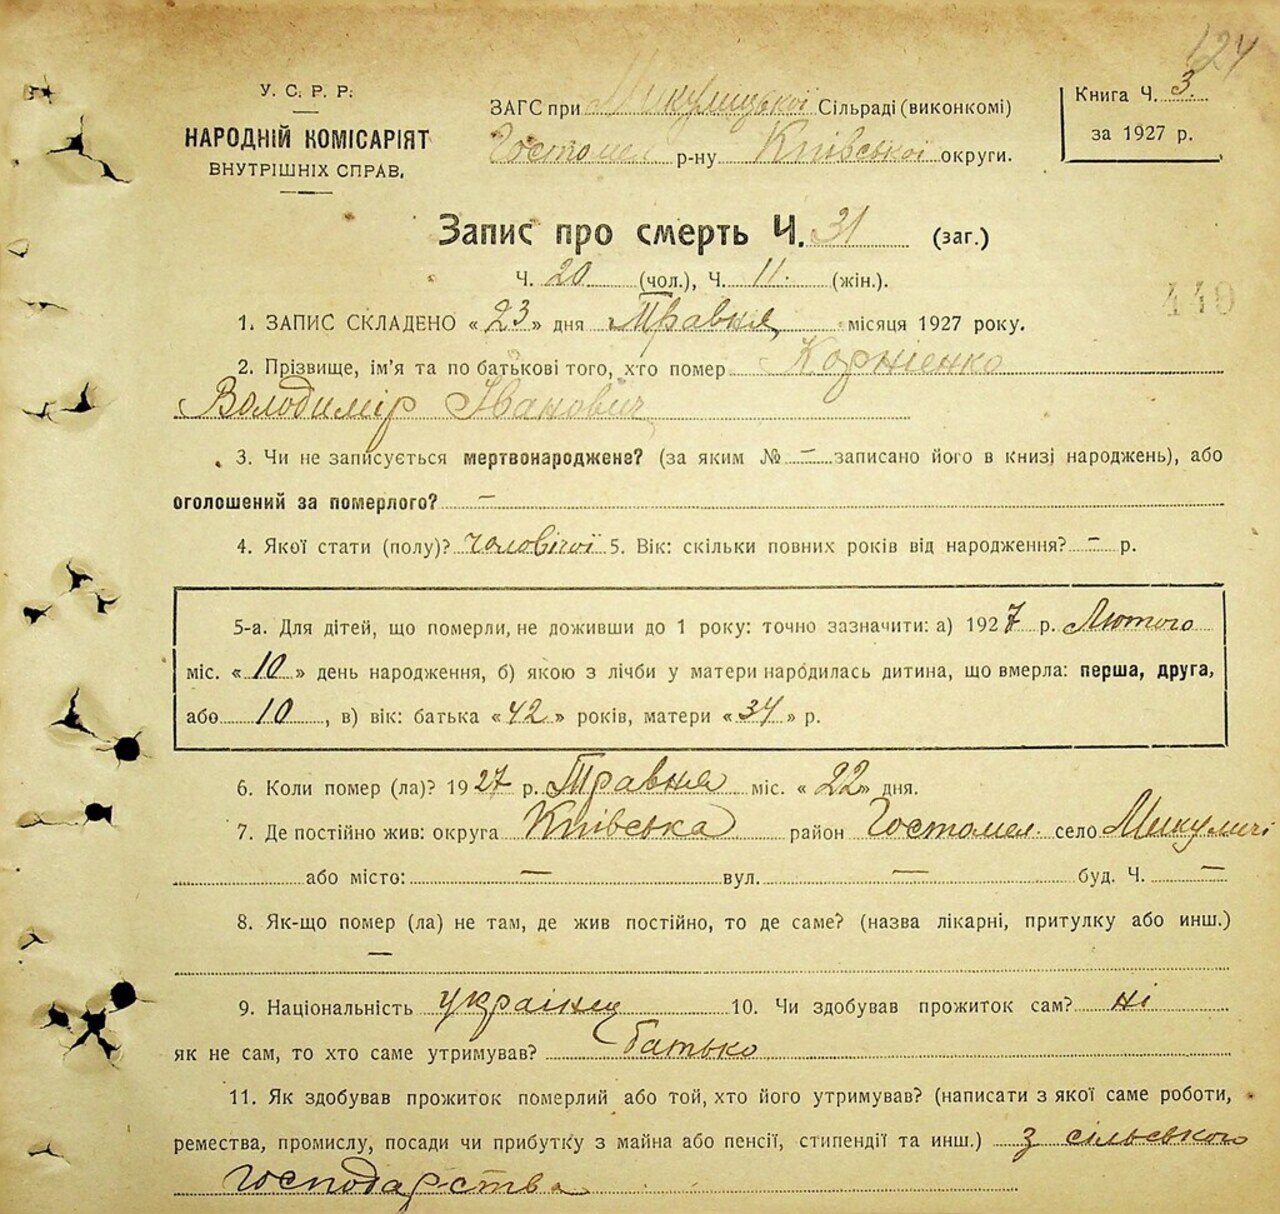 124
У. С. Р. Р.
НАРОДНІЙ КОМІСАРІЯТ
ВНУТРІШНІХ СПРАВ.
ЗАГС при Микулицької Сільраді (виконкомі)
Гостомел р-ну Київської округи.
Книга Ч. 3.
за 1927 р.
Запис про смерть Ч. 31 (заг.)
Ч. 20 (чол.), Ч. 11. (жін.).
440
1. ЗАПИС СКЛАДЕНО «23» дня Травня місяця 1927 року.
2. Прізвище, ім'я та по батькові того, хто помер Корнієнко
Володимір Іванович
3. Чи не записується мертвонароджене? (за яким № – записано його в книзі народжень), або
оголошений за померлого? –
4. Якої стати (полу)? чоловічої 5. Вік: скільки повних років від народження? – р.
5-а. Для дітей, що померли, не доживши до 1 року: точно зазначити: а) 1927 р. Лютого
міс. «10» день народження, б) якою з лічби у матери народилась дитина, що вмерла: перша, друга,
або 10, в) вік: батька «42» років, матери «34» р.
6. Коли помер (ла)? 1927 р. Травня міс. «22» дня.
7. Де постійно жив: округа Київська район Гостомел. село Микуличі
або місто: — вул. — буд. Ч. —
8. Як-що помер (ла) не там, де жив постійно, то де саме? (назва лікарні, притулку або инш.)
—
9. Національність українець 10. Чи здобував прожиток сам? ні
як не сам, то хто саме утримував? батько
11. Як здобував прожиток померлий або той, хто його утримував? (написати з якої саме роботи,
ремества, промислу, посади чи прибутку з майна або пенсії, стипендії та инш.) з сільського
господарства